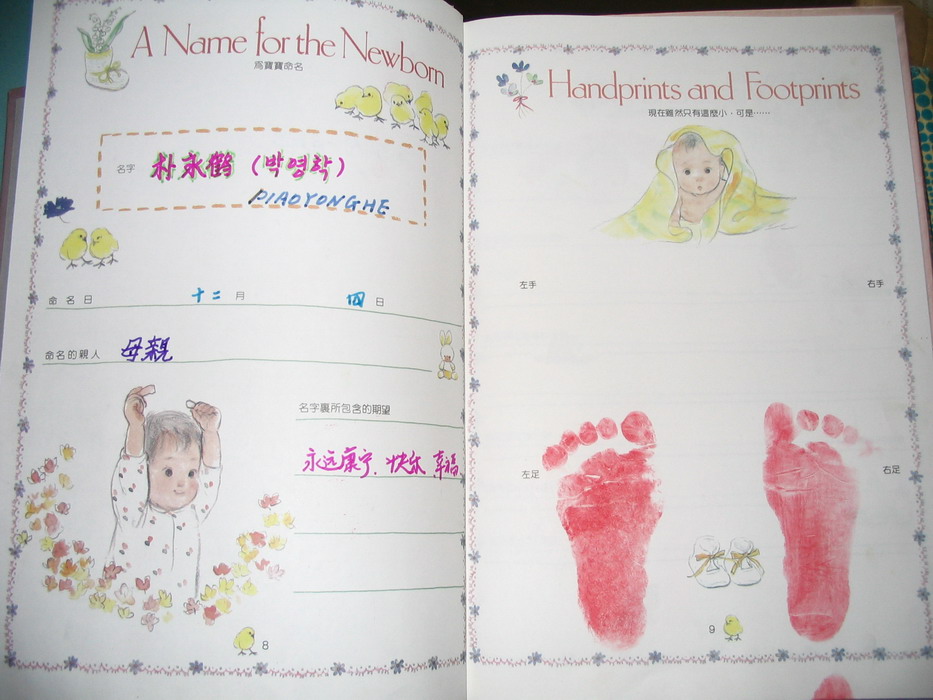 A Name for the Newborn
為寶寶命名
名字 朴永鶴 (박영학)
PIAO YONG HE
命名日 十二 月 四 日
命名的親人 母親
名字裏所包含的期望
永远康宁、快乐 幸福、
8
Handprints and Footprints
現在雖然只有這麼小，可是……
左手 右手
左足 右足
9